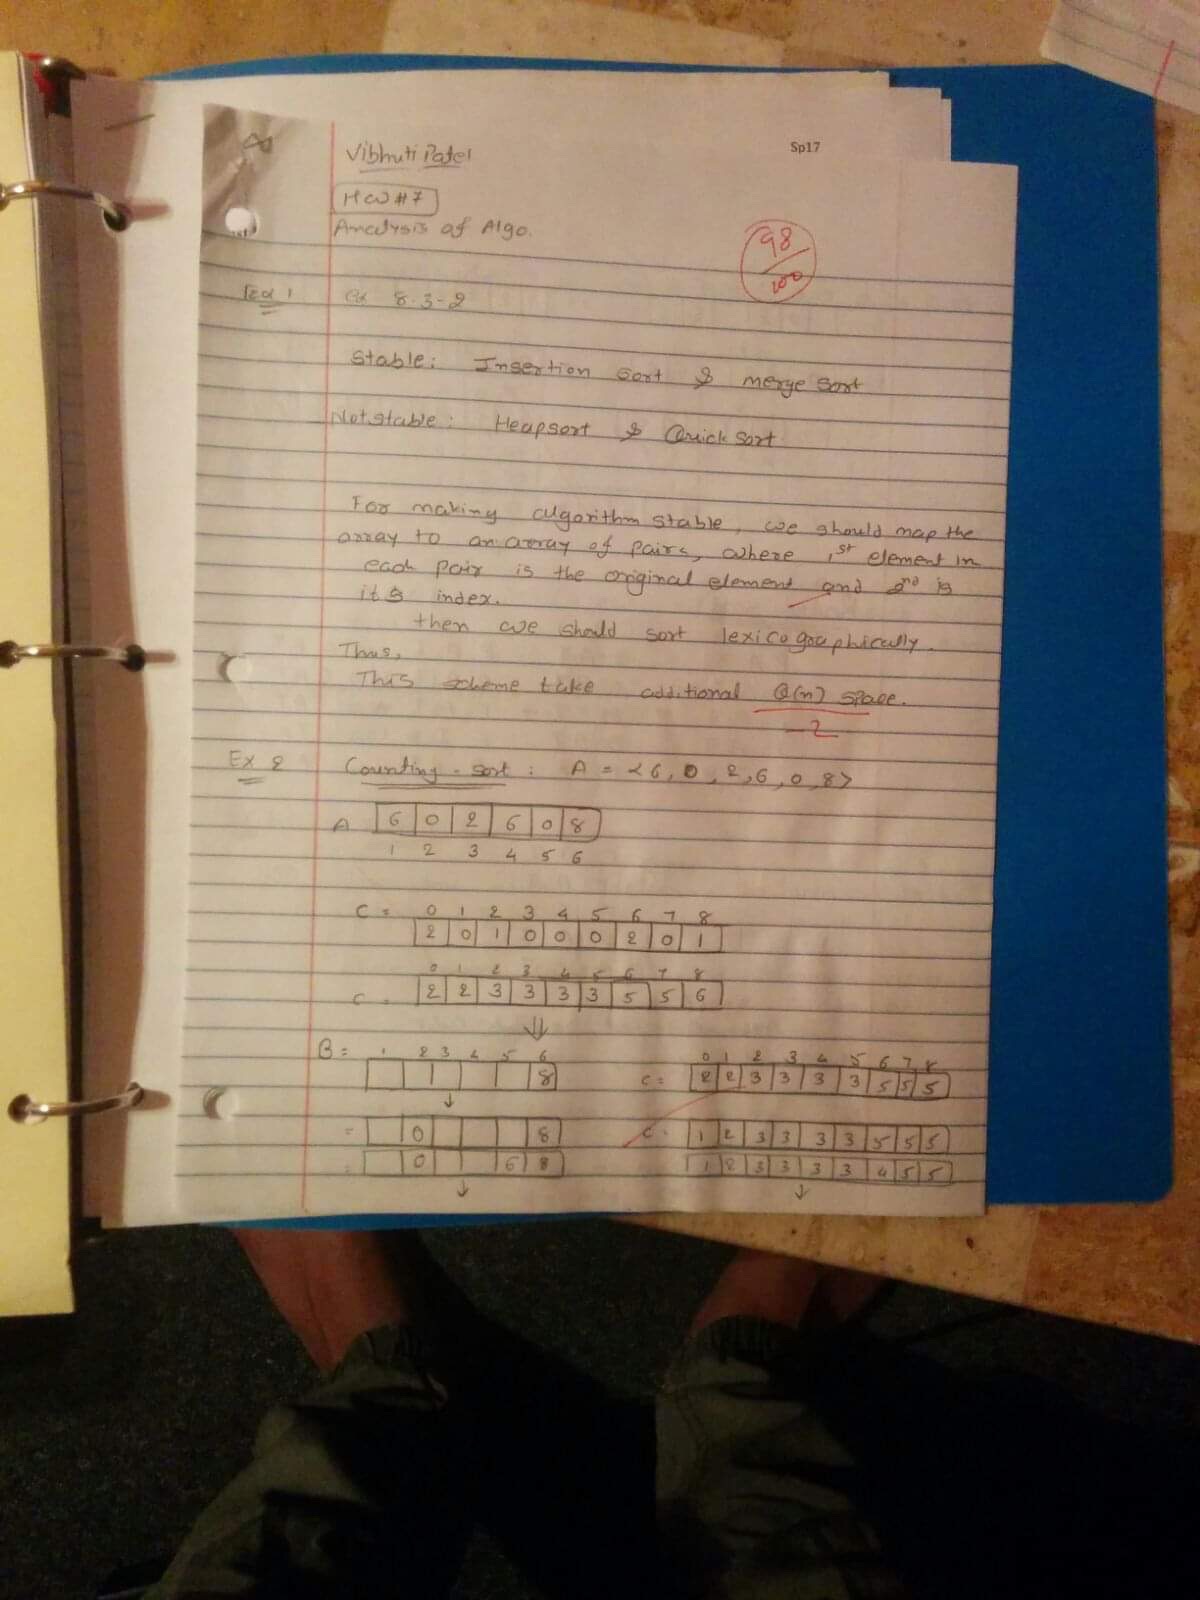 Vibhuti Patel
Sp17
HW#7
Analysis of Algo.
98
100
Ex 1 ex 8.3-2
Stable: Insertion sort & merge sort
Not stable: Heapsort & Quick sort
For making algorithm stable, we should map the
array to an array of pairs, where 1st element in
each pair is the original element and 2nd is
its index.
then we should sort lexicographically.
Thus,
This scheme take additional Θ(n) space.
-2
Ex 2 Counting-sort: A = <6, 0, 2, 6, 0, 8>
A 6 0 2 6 0 8
1 2 3 4 5 6
C = 0 1 2 3 4 5 6 7 8
2 0 1 0 0 0 2 0 1
0 1 2 3 4 5 6 7 8
C = 2 2 3 3 3 3 5 5 6
⇓
B = 1 2 3 4 5 6
8
0 1 2 3 4 5 6 7 8
C = 2 2 3 3 3 3 5 5 5
↓
= 0 8
C = 1 2 3 3 3 3 5 5 5
= 0 6 8
1 2 3 3 3 3 4 5 5
↓ ↓